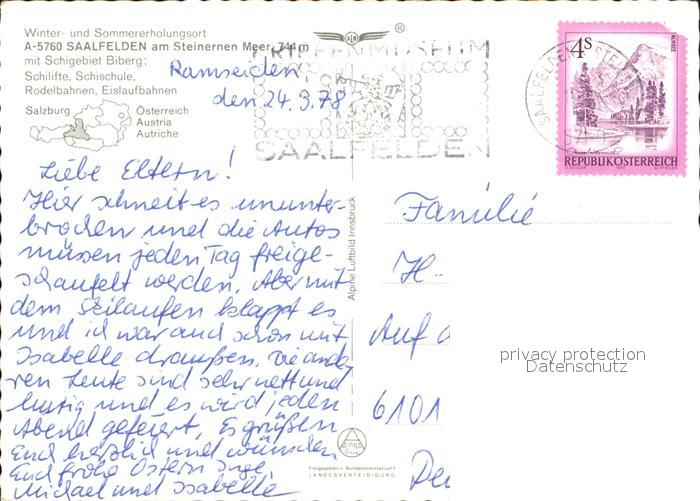 Winter- und Sommererholungsort
A-5760 SAALFELDEN am Steinernen Meer, 744m
mit Schigebiet Biberg;
Schilifte, Schischule,
Rodelbahnen, Eislaufbahnen
Salzburg
Österreich
Austria
Autriche
SAALFELDEN
4s
REPUBLIK ÖSTERREICH
Ramseiden,
den 24.3.78
Liebe Eltern!
Hier schneit es ununter-
brochen und die Autos
müssen jeden Tag freige-
schaufelt werden. Aber mit
dem Skilaufen klappt es
und ich war auch schon mit
Isabelle draußen. Die ande-
ren Leute sind sehr nett und
lustig und es wird jeden
Abend gefeiert. Es grüßen
Euch herzlich und wünschen
Euch frohe Ostern
Michael und Isabelle
Alpine Luftbild Innsbruck
Familie
H.
Auf d
6101
privacy protection
Datenschutz
Freigegeben v. Bundesministerium f.
LANDESVERTEIDIGUNG